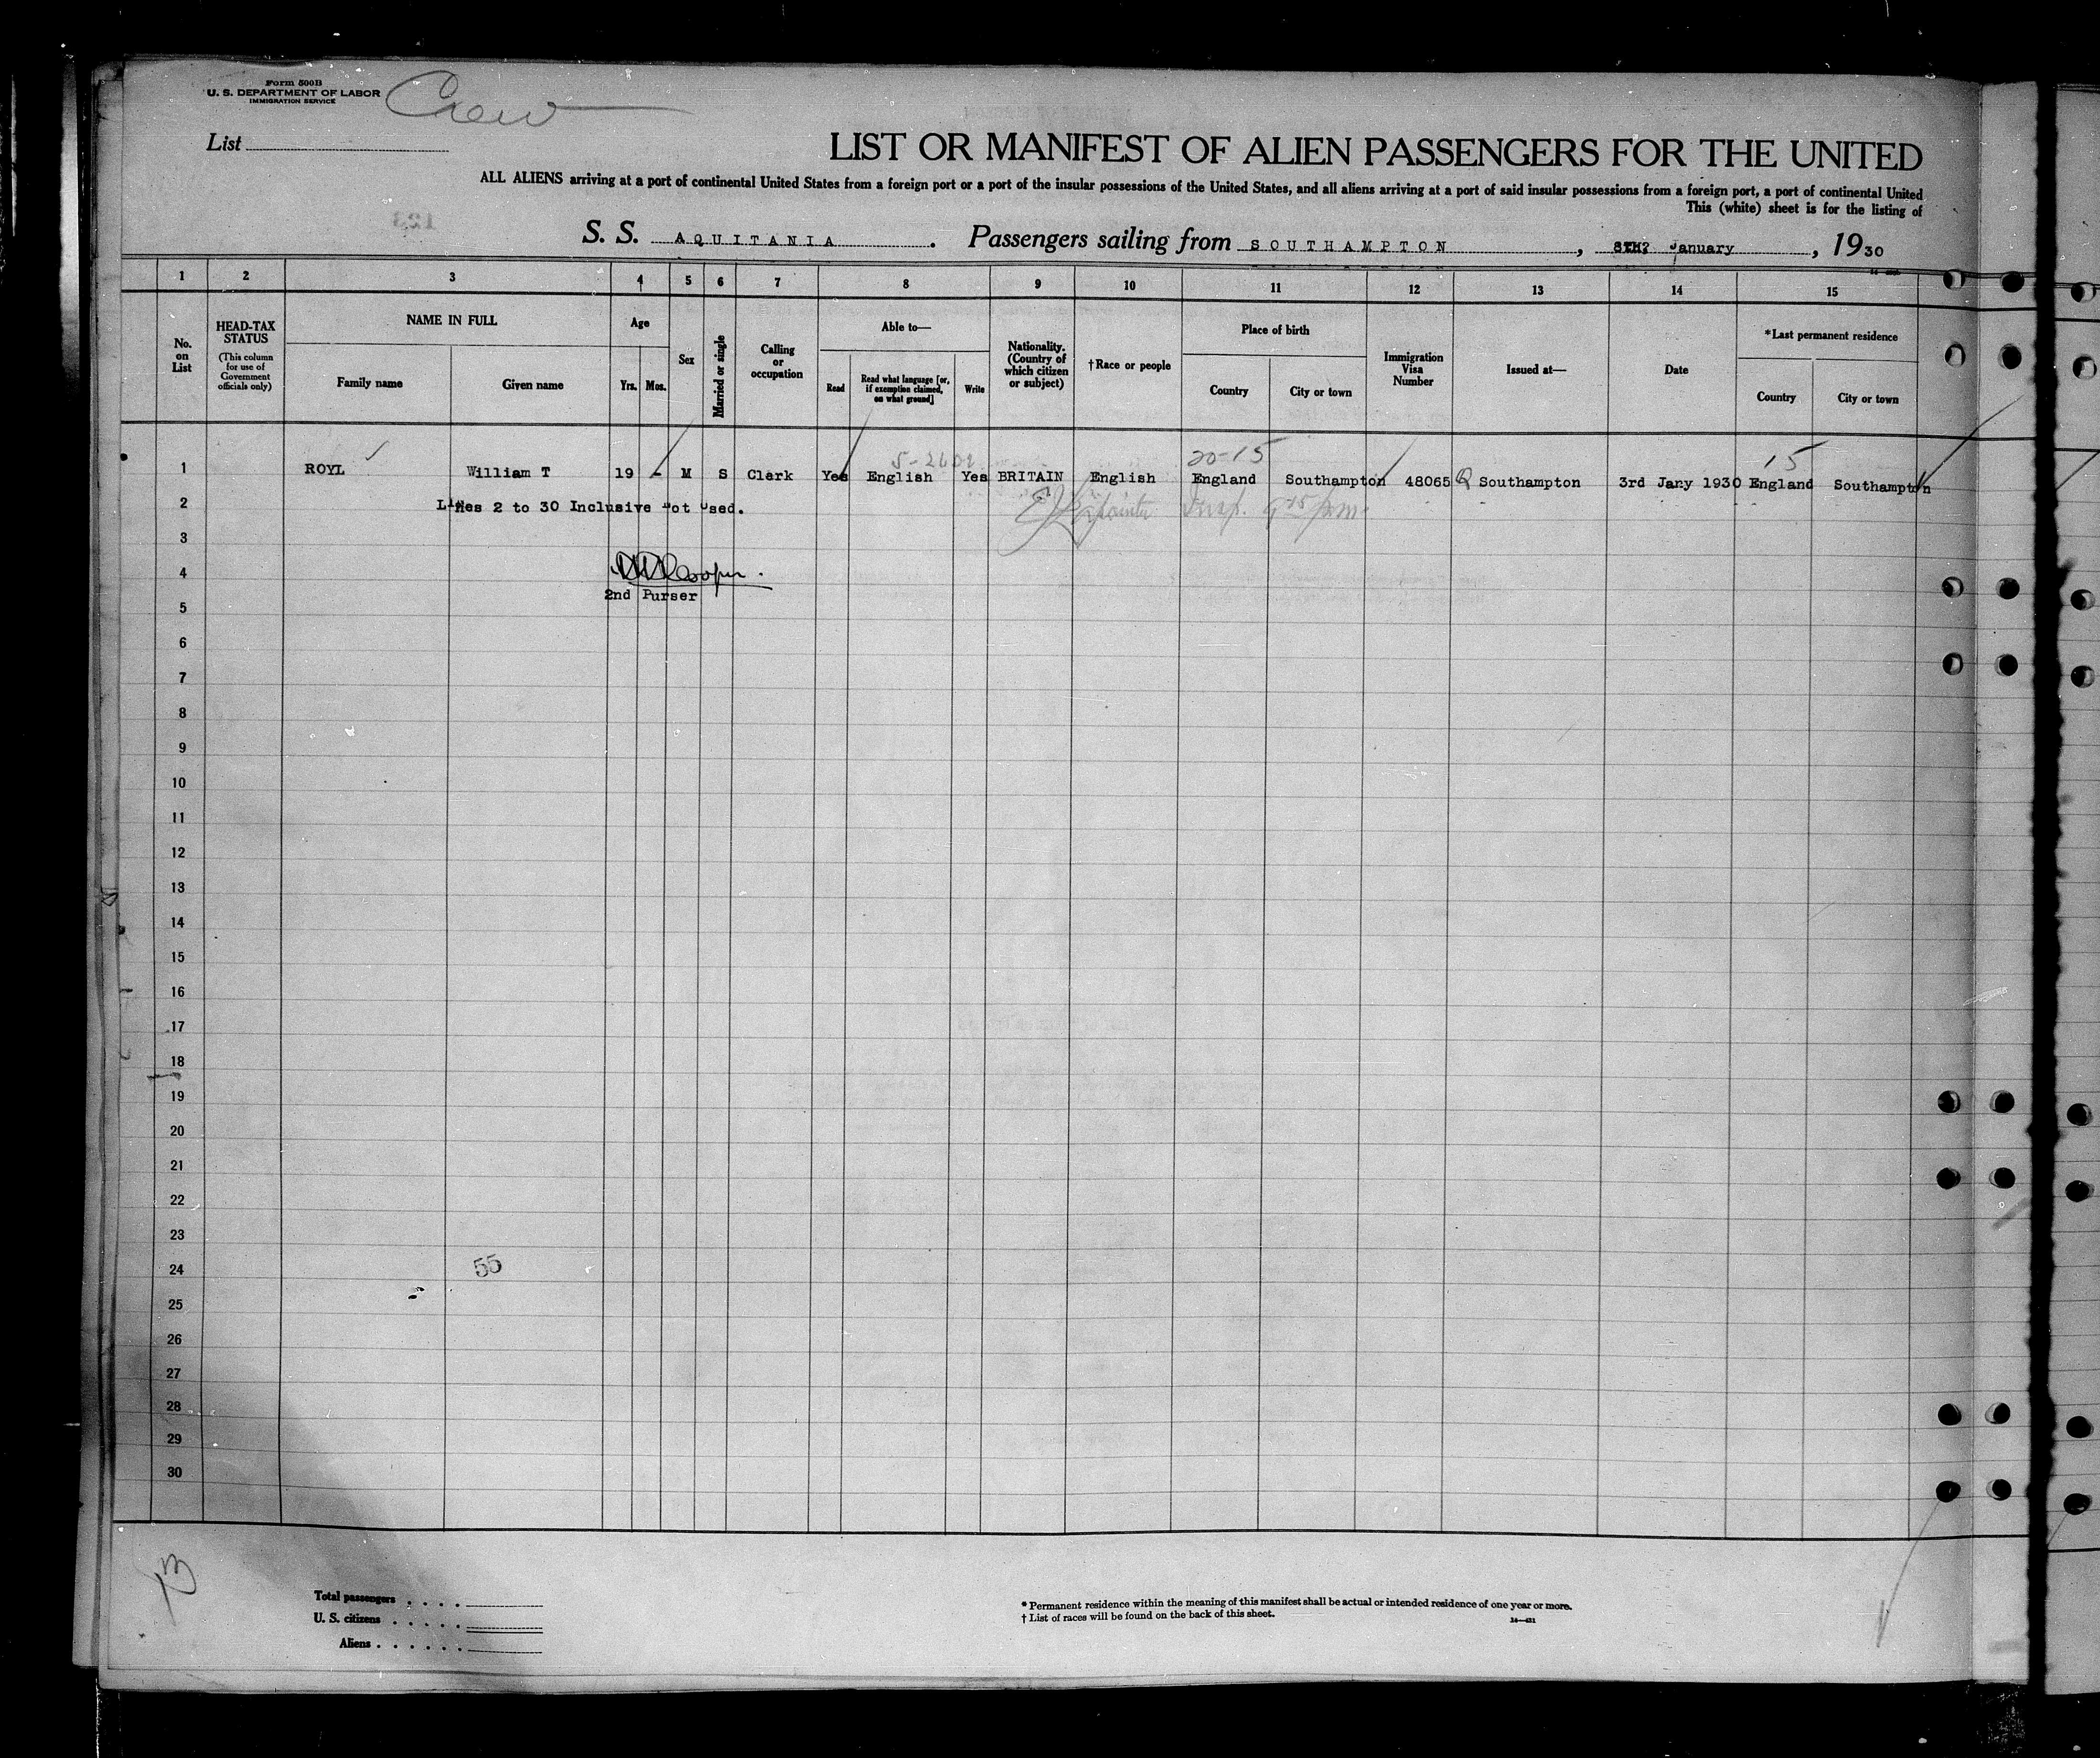 Form 500B
U. S. DEPARTMENT OF LABOR
IMMIGRATION SERVICE
Crew
List
LIST OR MANIFEST OF ALIEN PASSENGERS FOR THE UNITED
ALL ALIENS arriving at a port of continental United States from a foreign port or a port of the insular possessions of the United States, and all aliens arriving at a port of said insular possessions from a foreign port, a port of continental United
This (white) sheet is for the listing of
S. S. AQUITANIA. Passengers sailing from SOUTHAMPTON, January, 1930
1 2 3 4 5 6 7 8 9 10 11 12 13 14 15
No. on List
HEAD-TAX STATUS
(This column for use of Government officials only)
NAME IN FULL
Family name
Given name
Age
Yrs.
Mos.
Sex
Married or single
Calling or occupation
Able to—
Read
Read what language [or, if exemption claimed, on what ground]
Write
Nationality. (Country of which citizen or subject)
†Race or people
Place of birth
Country
City or town
Immigration Visa Number
Issued at—
Date
*Last permanent residence
Country
City or town
20-15 15
1 ROYL William T 19 - M S Clerk Yes English Yes BRITAIN English England Southampton 48065 Q Southampton 3rd Jany 1930 England Southampton
2 Lines 2 to 30 Inclusive Not Used.
3
4
2nd Purser
5
6
7
8
9
10
11
12
13
14
15
16
17
18
19
20
21
22
23
24
55
25
26
27
28
29
30
13
Total passengers
U. S. citizens
Aliens
* Permanent residence within the meaning of this manifest shall be actual or intended residence of one year or more.
† List of races will be found on the back of this sheet.